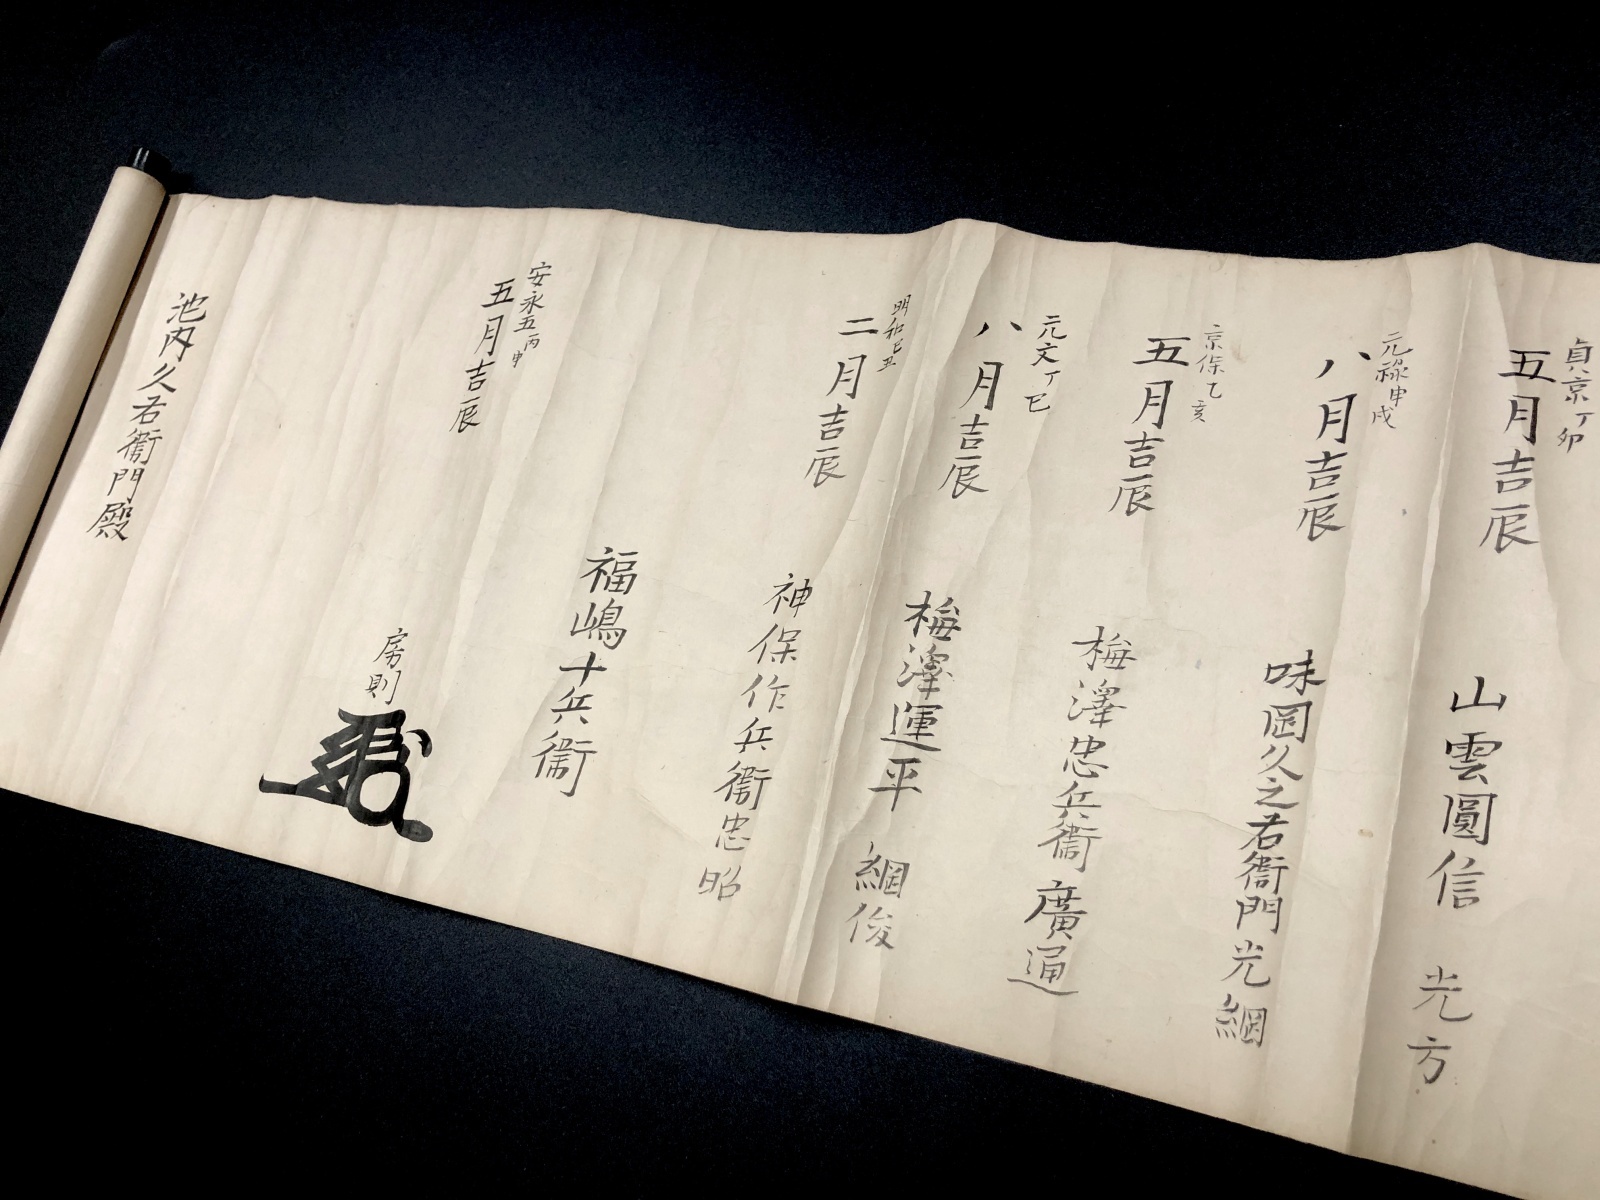 貞京丁卯
五月吉辰
山雲圓信 光方
元禄申戌
八月吉辰
味岡久之右衛門光綱
京保乙亥
五月吉辰
梅澤忠兵衛廣通
元文丁巳
八月吉辰
梅澤運平 綱俊
明和己丑
二月吉辰
神保作兵衛忠昭
福嶋十兵衛
安永五丙申
五月吉辰
房則
池内久右衛門殿